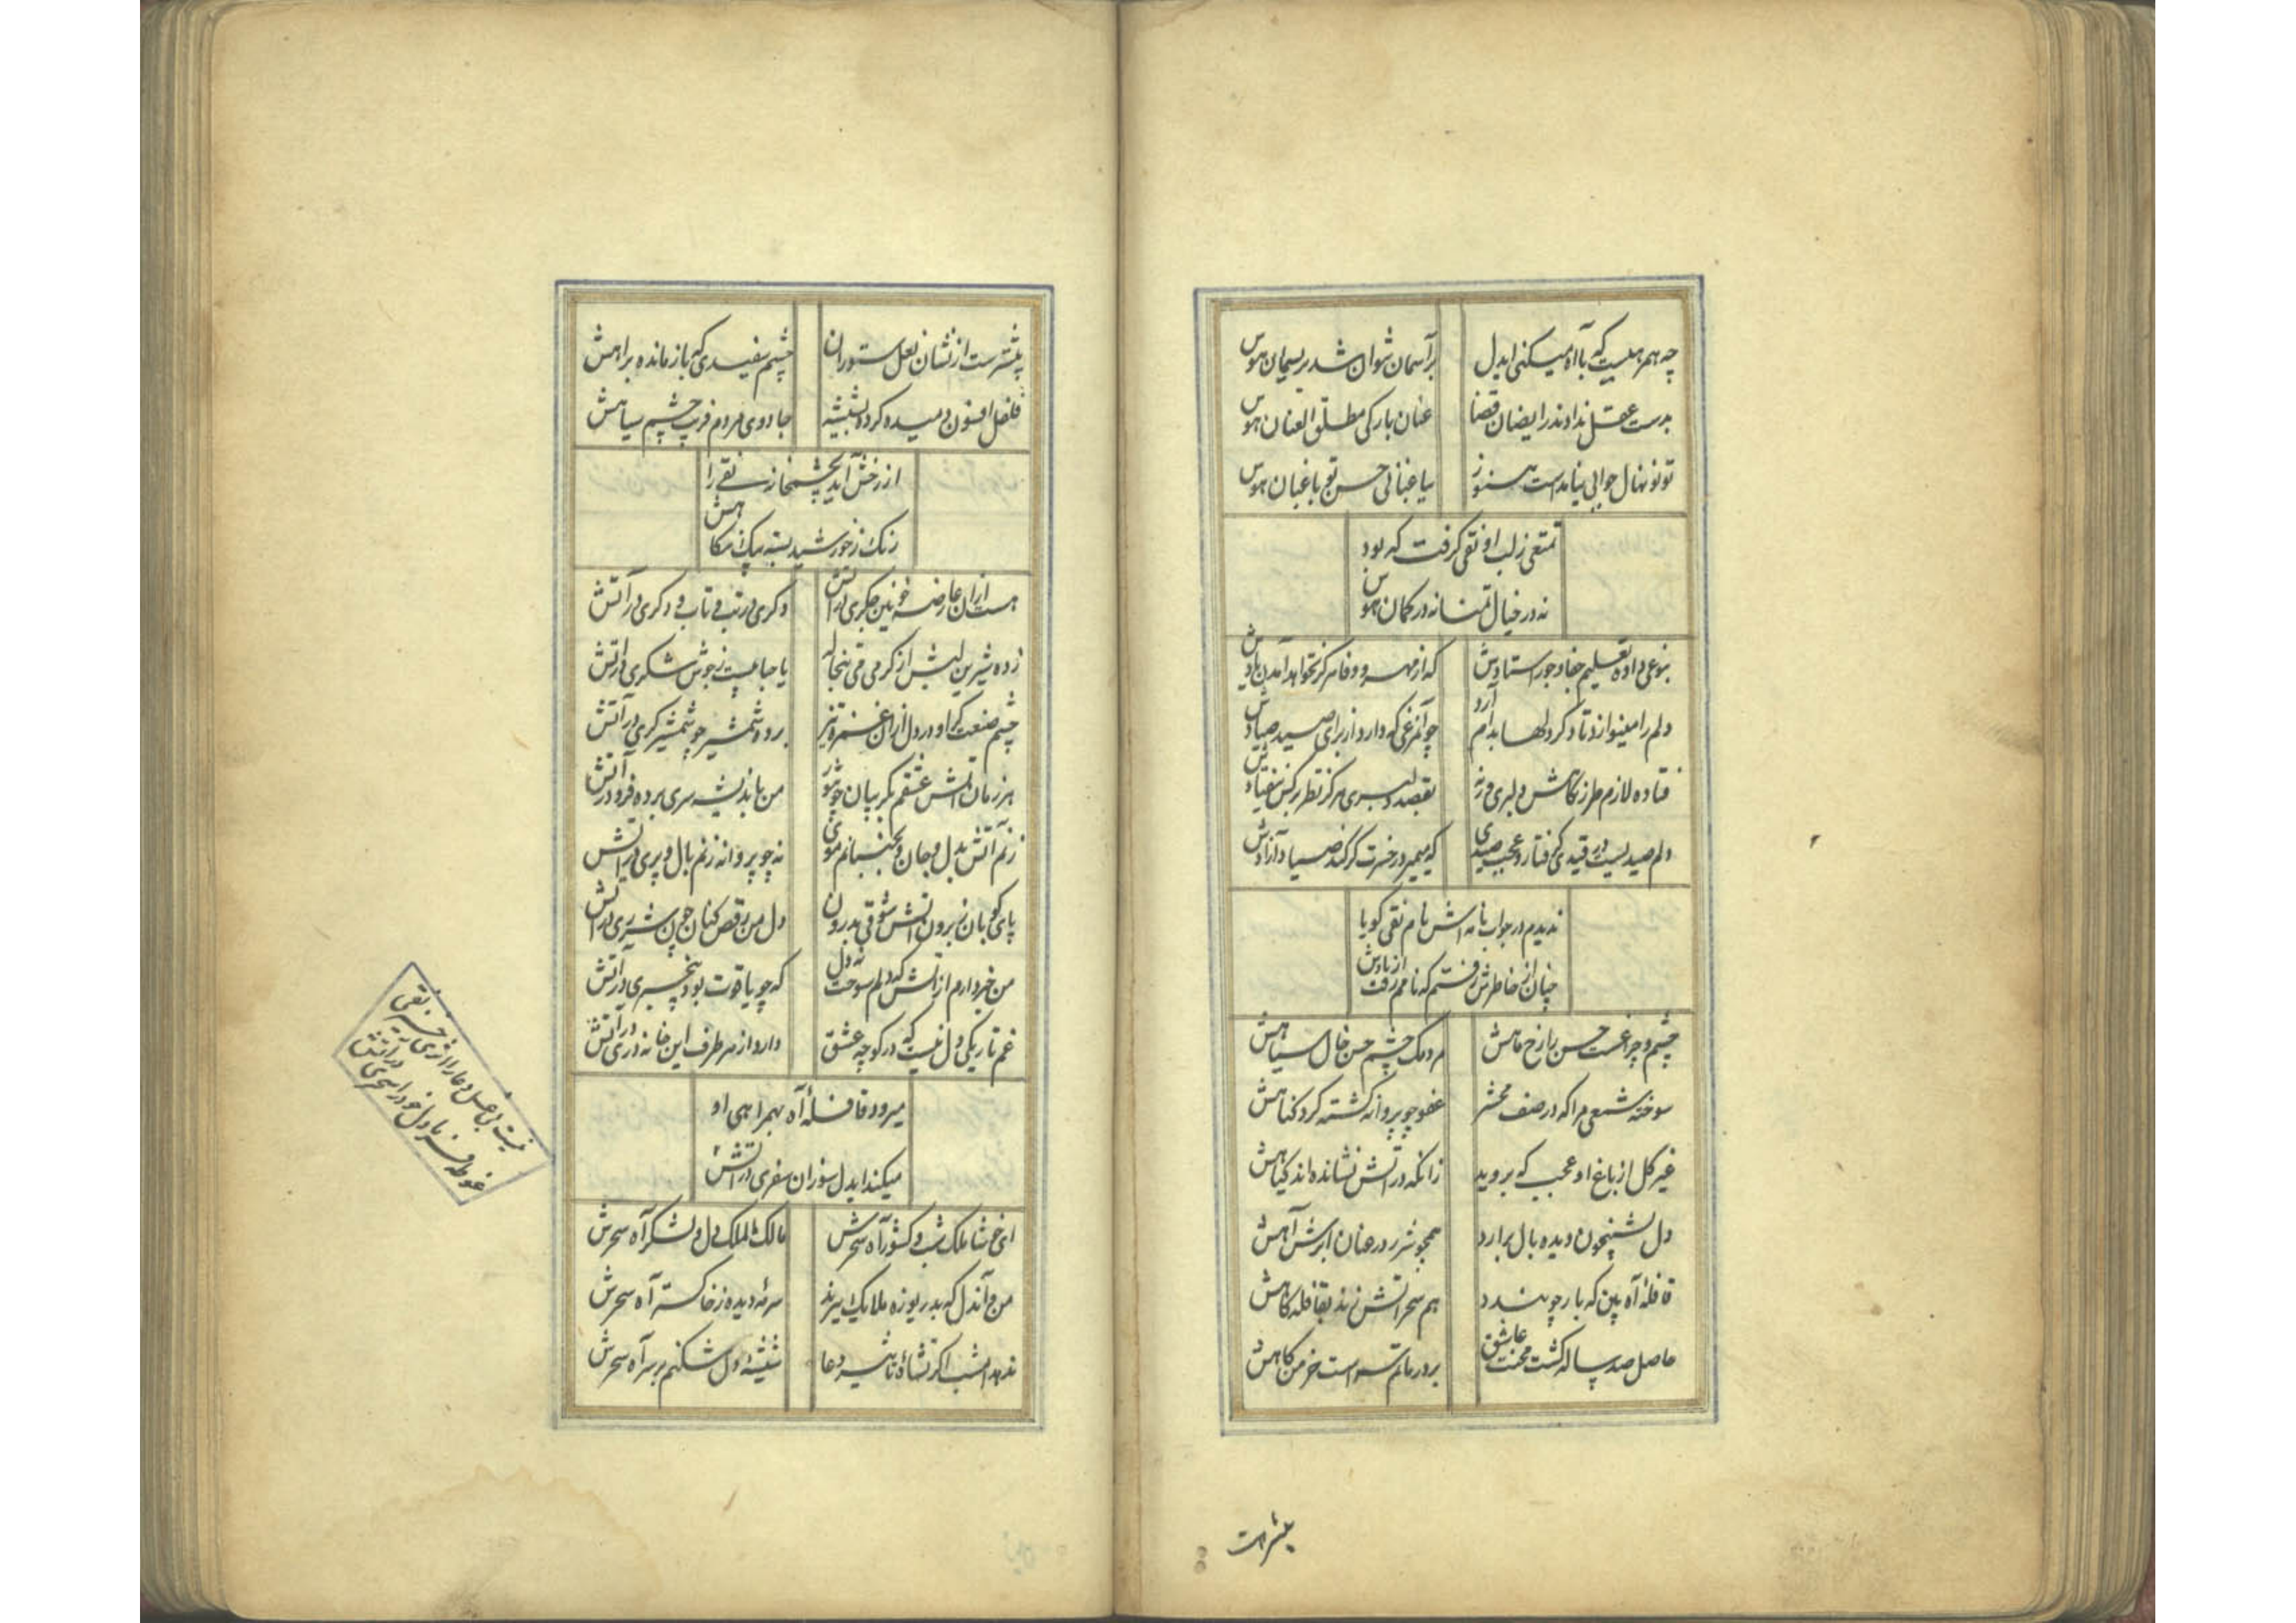 چه همرهیست که با آه میکنی ایدل
بر آسمان نتوان شد بریسمان هوس
بدست عقل ندادند رایضان قضا
عنان بارکی مطلق العنان هوس
تو نونهال جوانی نیامدست هنوز
بباغبانی حسن تو باغبان هوس
تمتعی ز لب او نقی گرفت که بود
نه در خیال تمنا نه در گمان هوس
بنوعی داده تعلیم جفا و جور استادش
که از مهر و وفا هرگز نخواهد آمدن یادش
دلم را مینوازد تا دگر دلها بدام آرد
چو آنمرغی که دارد از برای صید صیادش
فتاده لازم طرز نگاهش دلبری ورنه
بقصد دلبری هرگز نظر بر کس نیفتادش
دلم صیدیست در قیدی گرفتار و عجب صیدی
که میمیرد ز حسرت گر کند صیاد آزادش
ندیدم در جواب نامه اش نام نقی گویا
چنان از خاطرش رفتم که نامم رفت از یادش
چشم و چراغست حسن را رخ ماهش
مردمک چشم حسن خال سیاهش
سوخته شمعی مرا که در صف محشر
عفو چو پروانه گشته گرد گناهش
غیر گل از باغ او عجب که بروید
زانکه در آتش نشانده اند گیاهش
دل بشبیخون دیده بال برآرد
همچو شرر در عنان ابرش آهش
قافلهٔ آه بین که بار چو بندد
هم سحر آتش زند بقافله گاهش
حاصل صد ساله کشت محنت عاشق
برد و ماتم تست خرمن کاهش
بیشتر است
بیشترست از نشان نعل ستوران
چشم سفیدی که باز مانده براهش
فضل افسون دمیده کرده بشیشه
جادوی مردم فریب چشم سیاهش
از رخش آید بچشمخانه نقی را
رنگ ز خورشید بسته پیک نگاهش
هست از ان عارضه خونین جگری در آتش
دگری در تب و تاب و دگری در آتش
زده شیرین لبش از گرمی می تبخاله
یا حبابیست ز جوش شکری در آتش
چشم صنعتگر او در دل از ان غمزه تیز
برده شمشیر چو شمشیرگری در آتش
هر زمان آتش عشقم ز گریبان خوشتر
من باندیشه سری برده فرو در آتش
زنم آتش بدل و جان و نجنبانم موی
نه چو پروانه زنم بال و پری در آتش
پای کوبان ز برون آتش شوقی بدرون
دل من رقص کنان چون شرری در آتش
من خبر دارم از آتش که دلم سوخت نه دل
که چو یاقوت بود بیخبری در آتش
غم تاریکی دل نیست که در کوچه عشق
دارد از هر طرف این خانه دری در آتش
میرود قافلهٔ آه بهمراهی او
میکند ایدل سوزان سفری در آتش
نیست بیحاصل دعا را اثری خیز نقی
غوطه فرما دل خود را سحری در آتش
ای خوشا ملک شب و کشور آه سحرش
مالک الملک دل و لشکر آه سحرش
من و آندل که بدریوزه ملایک ببرند
سرمه دیده ز خاکستر آه سحرش
ندهد امشب اگر نشاءهٔ تاثیر دعا
شیشهٔ دل شکنم بر سر آه سحرش